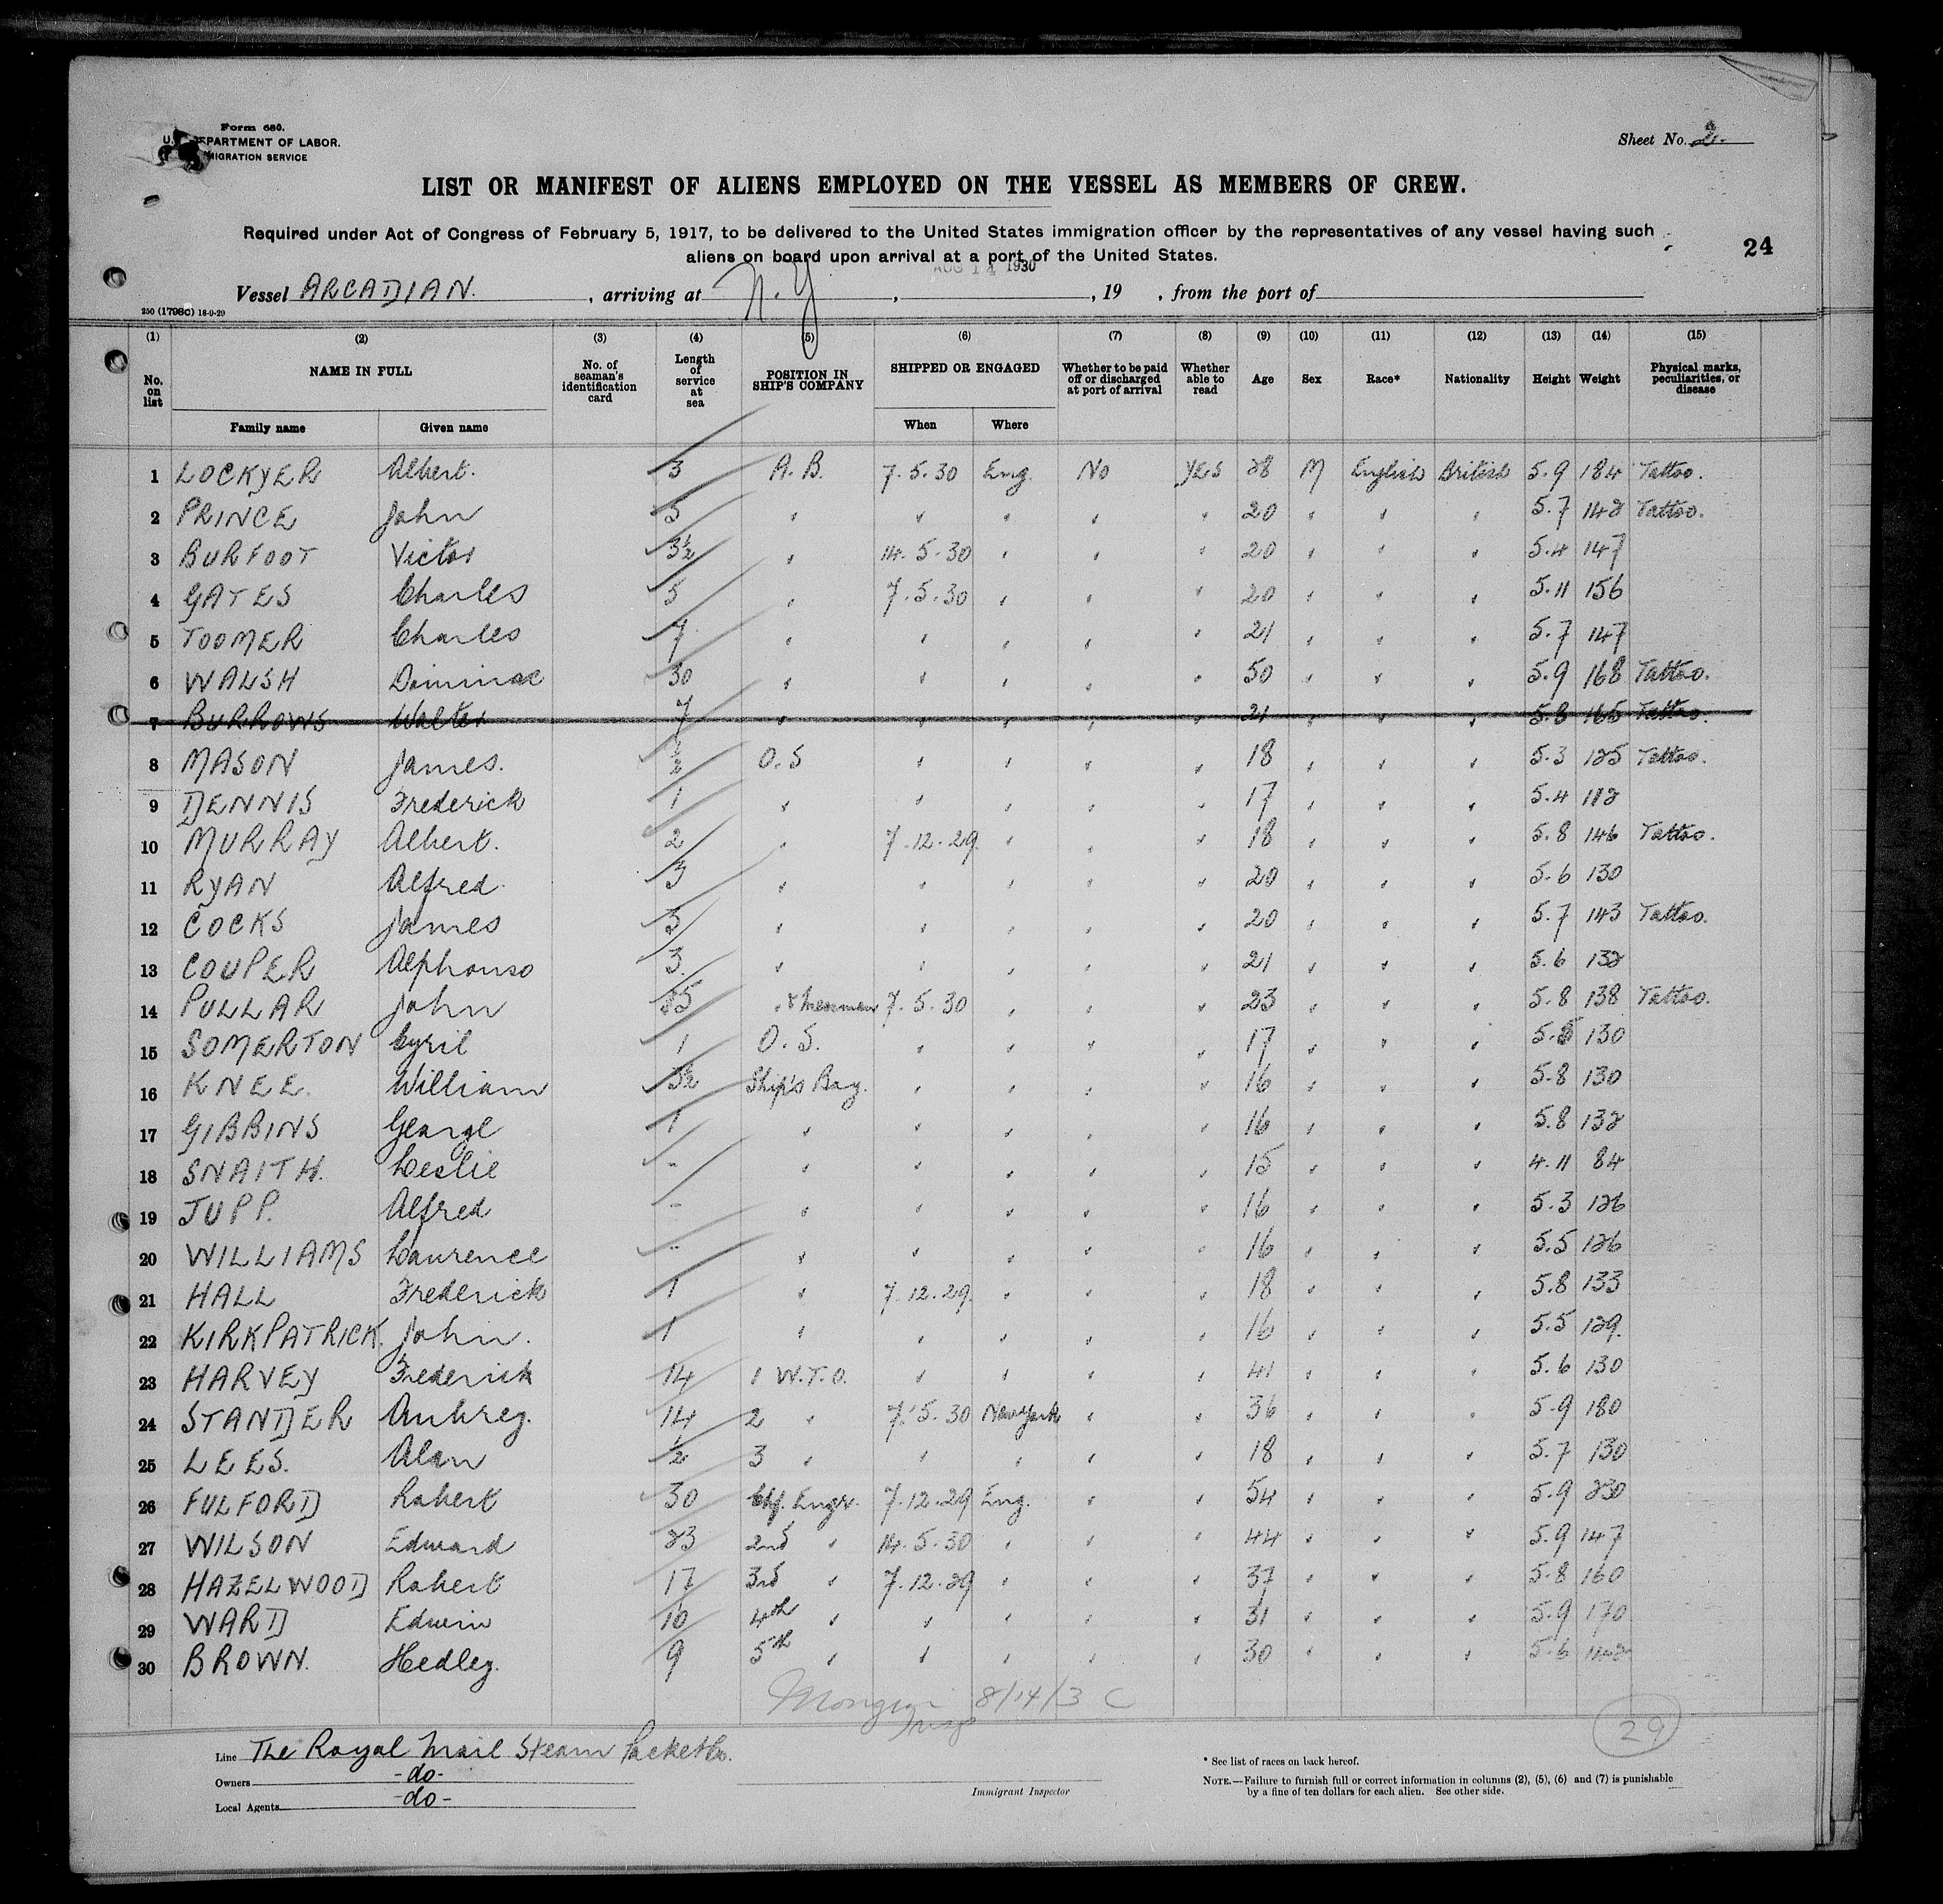 Form 680.
U. S. DEPARTMENT OF LABOR.
IMMIGRATION SERVICE
Sheet No. 2.
LIST OR MANIFEST OF ALIENS EMPLOYED ON THE VESSEL AS MEMBERS OF CREW.
Required under Act of Congress of February 5, 1917, to be delivered to the United States immigration officer by the representatives of any vessel having such
aliens on board upon arrival at a port of the United States.
24
AUG 14 1930
Vessel ARCADIAN. , arriving at N.Y , , 19 , from the port of
250 (1798c) 18-9-29
(1) (2) (3) (4) (5) (6) (7) (8) (9) (10) (11) (12) (13) (14) (15)
No. on list NAME IN FULL Family name Given name No. of seaman's identification card Length of service at sea POSITION IN SHIP'S COMPANY SHIPPED OR ENGAGED When Where Whether to be paid off or discharged at port of arrival Whether able to read Age Sex Race* Nationality Height Weight Physical marks, peculiarities, or disease
1 LOCKYER Albert. 3 A.B. 7.5.30 Eng. No YES 28 M English British 5.9 184 Tattoo.
2 PRINCE John 5 " " " " " 20 " " " 5.7 142 Tattoo.
3 BURFOOT Victor 3½ " 14.5.30 " " " 20 " " " 5.4 147
4 GATES Charles 5 " 7.5.30 " " " 20 " " " 5.11 156
5 TOOMER Charles 7 " " " " " 21 " " " 5.7 147
6 WALSH Dominac 30 " " " " " 50 " " " 5.9 168 Tattoo.
7 BURROWS Walter 7 " " " " " 21 " " " 5.8 165 Tattoo.
8 MASON James. ½ O.S " " " " 18 " " " 5.3 125 Tattoo.
9 DENNIS Frederick 1 " " " " " 17 " " " 5.4 112
10 MURRAY Albert. 2 " 7.12.29 " " " 18 " " " 5.8 146 Tattoo.
11 RYAN Alfred. 3 " " " " " 20 " " " 5.6 130
12 COCKS James 5 " " " " " 20 " " " 5.7 143 Tattoo.
13 COUPER Alphonso 3. " " " " " 21 " " " 5.6 132
14 PULLAR John " 7.5.30 " " " 23 " " " 5.8 138 Tattoo.
15 SOMERTON Cyril 1 O.S. " " " " 17 " " " 130
16 KNEE. William Ship's Boy. " " " " 16 " " " 5.8 130
17 GIBBINS George 1 " " " " " 16 " " " 5.8 132
18 SNAITH. Leslie - " " " " " 15 " " " 4.11 84
19 JUPP. Alfred - " " " " " 16 " " " 5.3 126
20 WILLIAMS Laurence - " " " " " 16 " " " 5.5 126
21 HALL Frederick 1 " 7.12.29 " " " 18 " " " 5.8 133
22 KIRKPATRICK. John. 1 " " " " " 16 " " " 5.5 129.
23 HARVEY Frederick 14 1 W.T.O. " " " " 41 " " " 5.6 130
24 STANDER Aubrey. 14 2 " 7.5.30 New York " " 36 " " " 5.9 180
25 LEES. Alan ½ 3 " " " " " 18 " " " 5.7 130
26 FULFORD Robert 30 Chf. Engr. 7.12.29 Eng. " " 54 " " " 5.9 230
27 WILSON Edward 23 2nd " 14.5.30 " " " 44 " " " 5.9 147
28 HAZELWOOD Robert 17 3rd " 7.12.29 " " " 37 " " " 5.8 160
29 WARD Edwin 10 4th " " " " " 31 " " " 5.9 170
30 BROWN. Hedley. 9 5th " " " " " 30 " " " 5.6 142
8/14/3
29
Line The Royal Mail Steam Packet Co.
Owners -do-
Local Agents -do-
Immigrant Inspector
* See list of races on back hereof.
NOTE.—Failure to furnish full or correct information in columns (2), (5), (6) and (7) is punishable
by a fine of ten dollars for each alien. See other side.